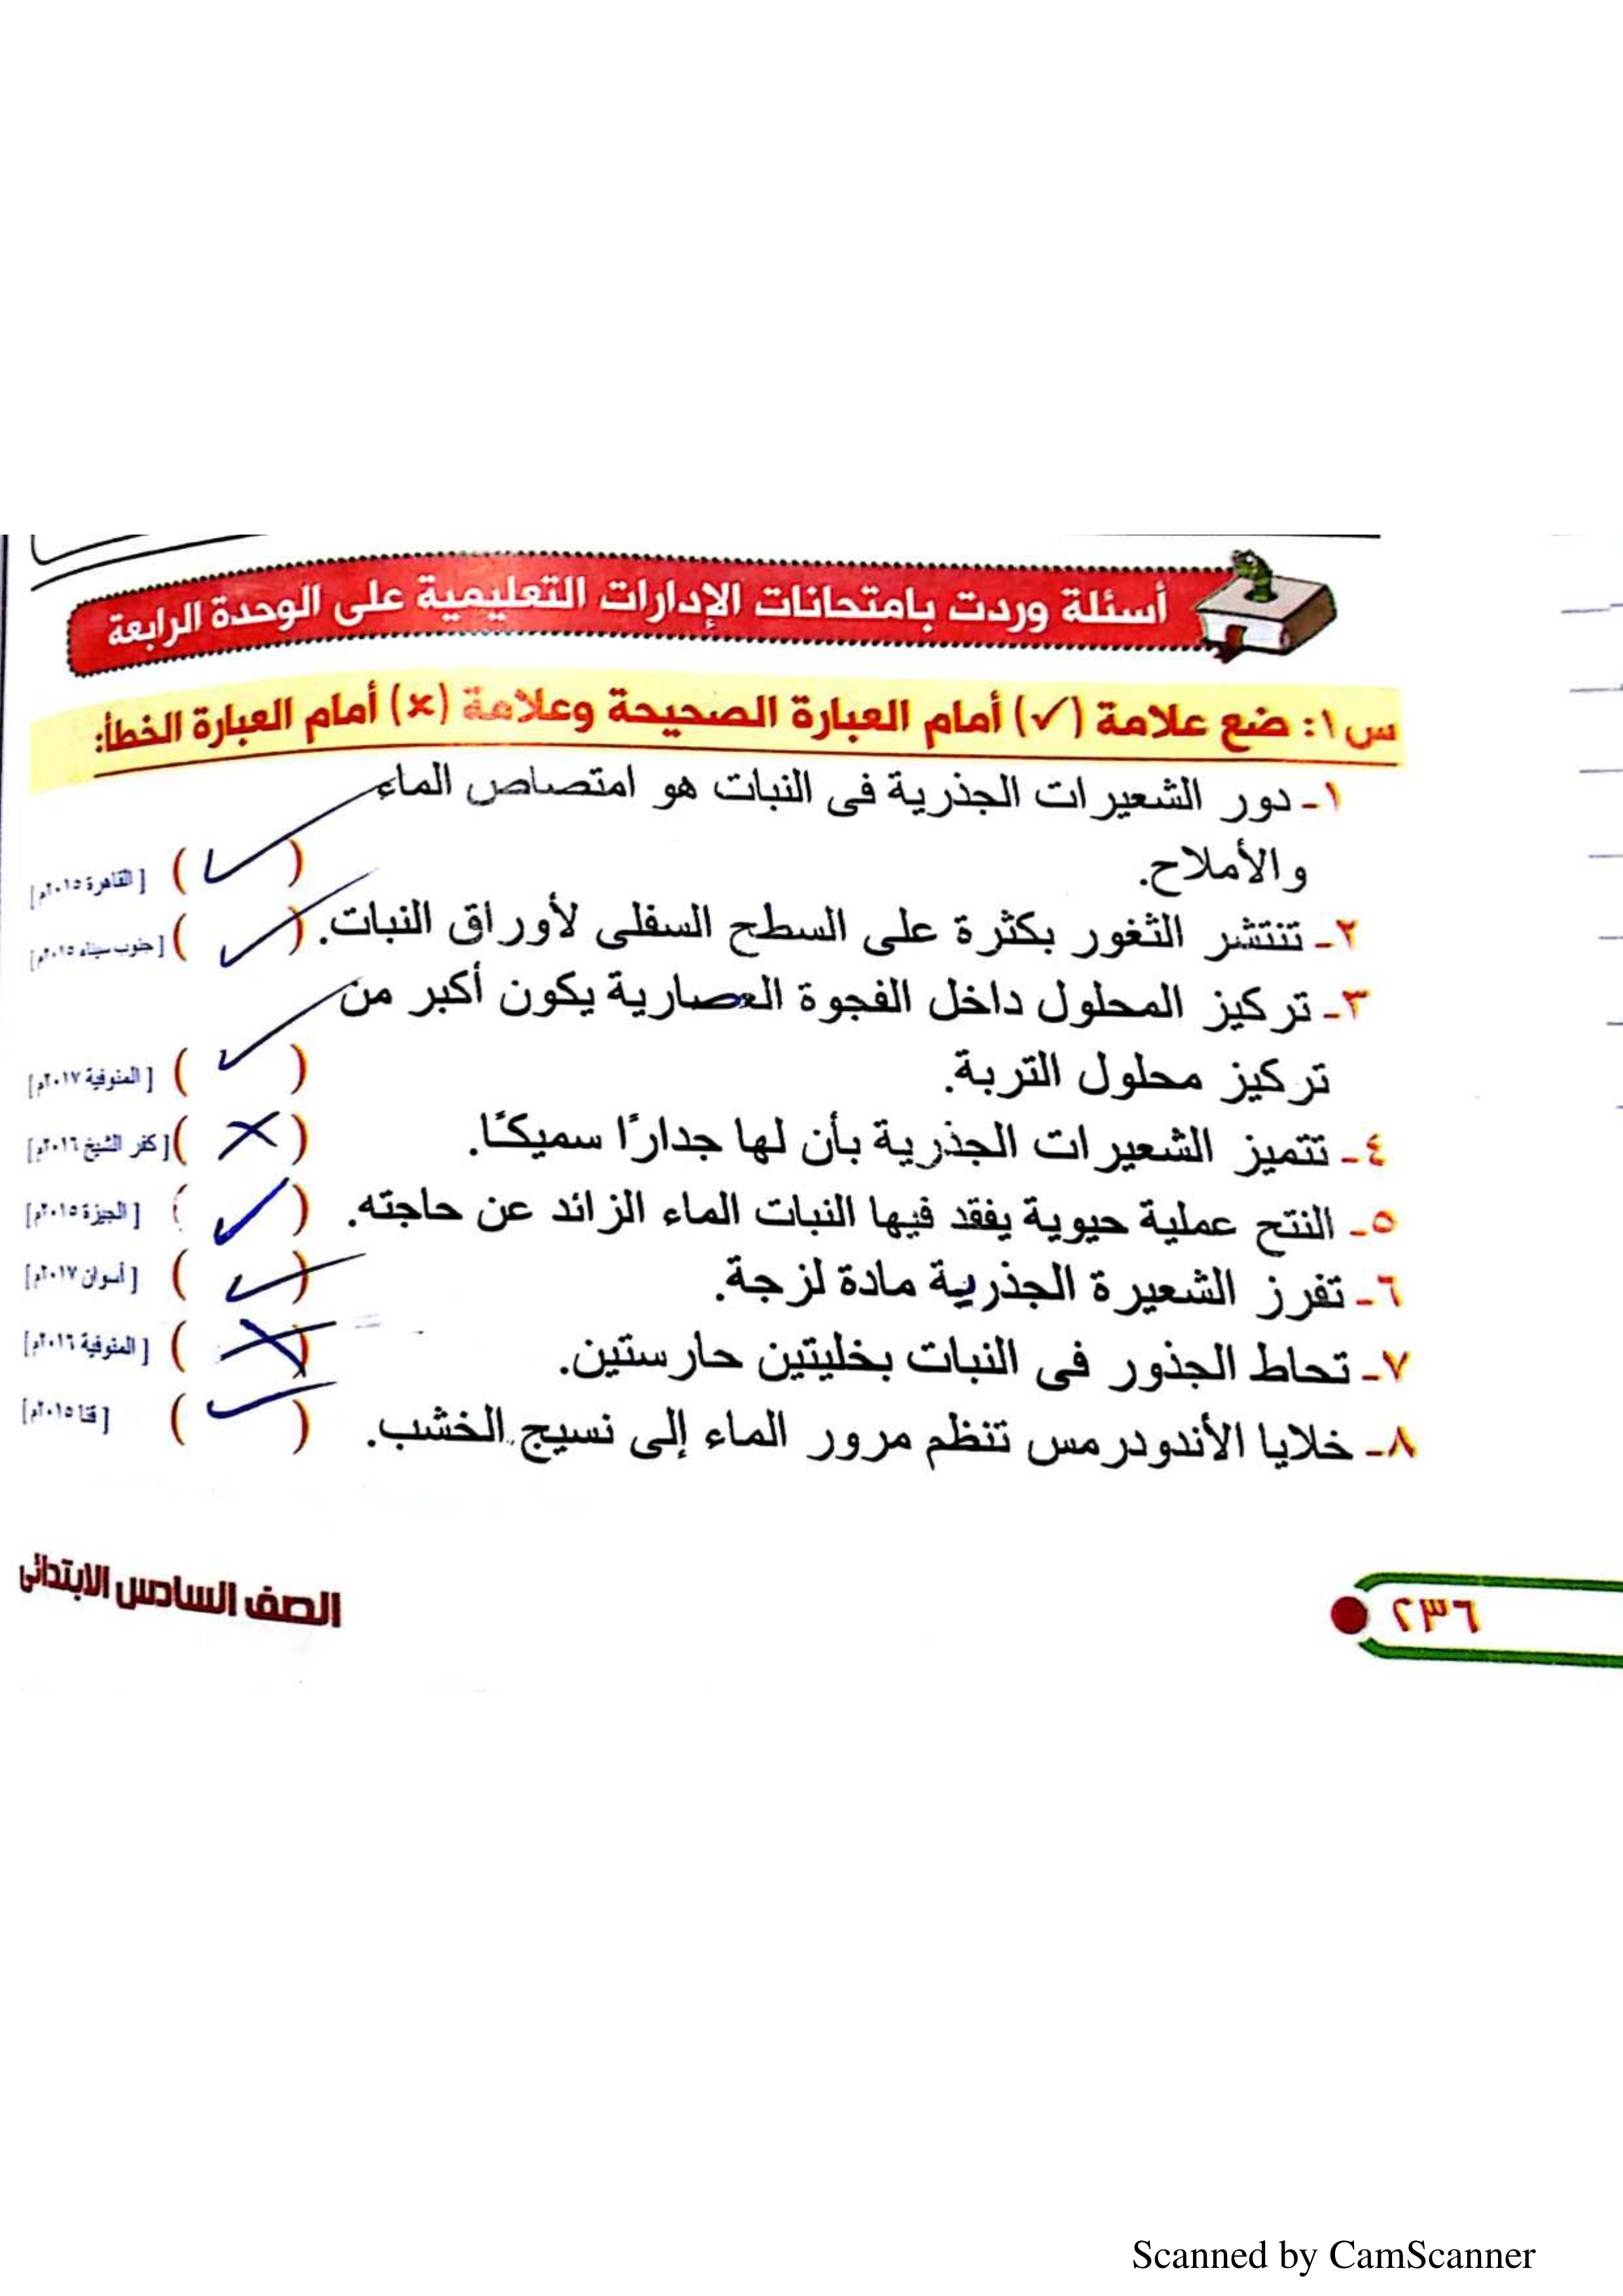 أسئلة وردت بامتحانات الإدارات التعليمية على الوحدة الرابعة
س١: ضع علامة (✓) أمام العبارة الصحيحة وعلامة (×) أمام العبارة الخطأ:
١- دور الشعيرات الجذرية فى النبات هو امتصاص الماء
والأملاح. ( ✓ ) [القاهرة ٢٠١٥م]
٢- تنتشر الثغور بكثرة على السطح السفلى لأوراق النبات. ( ✓ ) [جنوب سيناء ٢٠١٥م]
٣- تركيز المحلول داخل الفجوة العصارية يكون أكبر من
تركيز محلول التربة. ( ✓ ) [المنوفية ٢٠١٧م]
٤- تتميز الشعيرات الجذرية بأن لها جدارًا سميكًا. ( × ) [كفر الشيخ ٢٠١٦م]
٥- النتح عملية حيوية يفقد فيها النبات الماء الزائد عن حاجته. ( ✓ ) [الجيزة ٢٠١٥م]
٦- تفرز الشعيرة الجذرية مادة لزجة. ( ✓ ) [أسوان ٢٠١٧م]
٧- تحاط الجذور فى النبات بخليتين حارستين. ( × ) [المنوفية ٢٠١٦م]
٨- خلايا الأندودرمس تنظم مرور الماء إلى نسيج الخشب. ( ✓ ) [قنا ٢٠١٥م]
٢٣٦
الصف السادس الابتدائى
Scanned by CamScanner